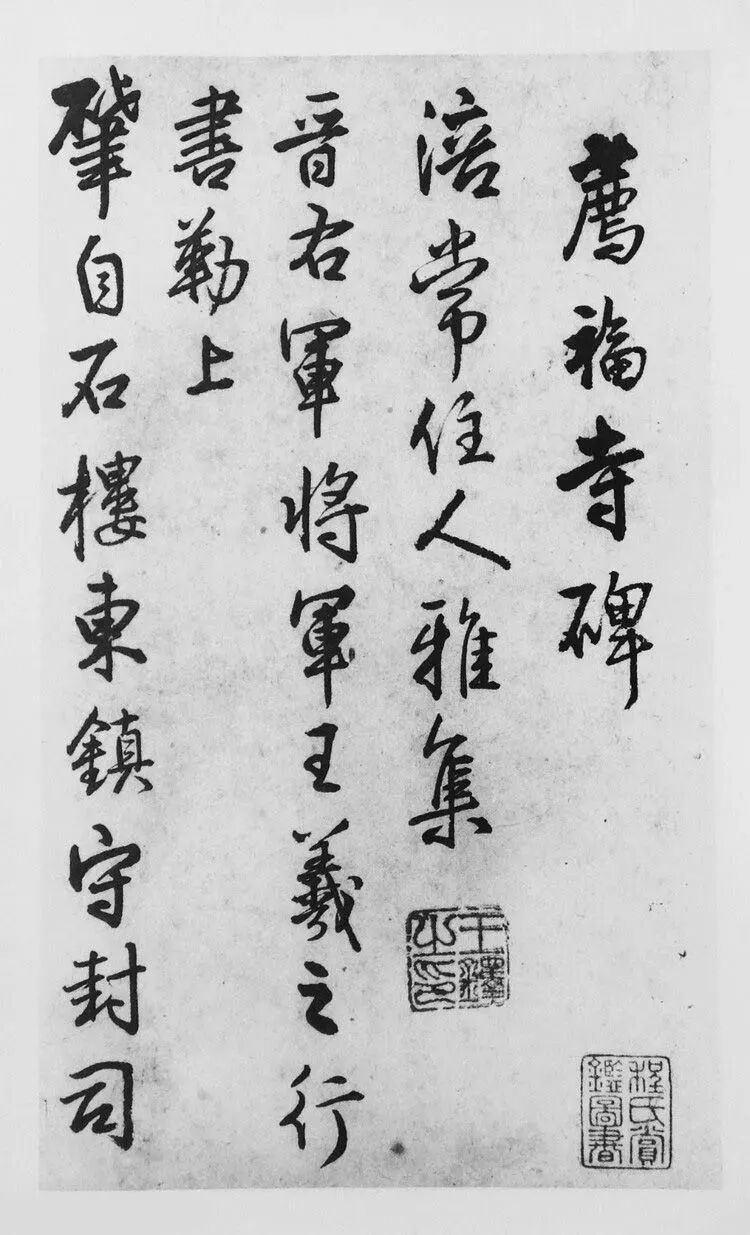 薦福寺碑
涪常住人雅集
晉右軍將軍王羲之行
書勒上
肇自石樓東鎮守封司
程氏賞鑑圖書